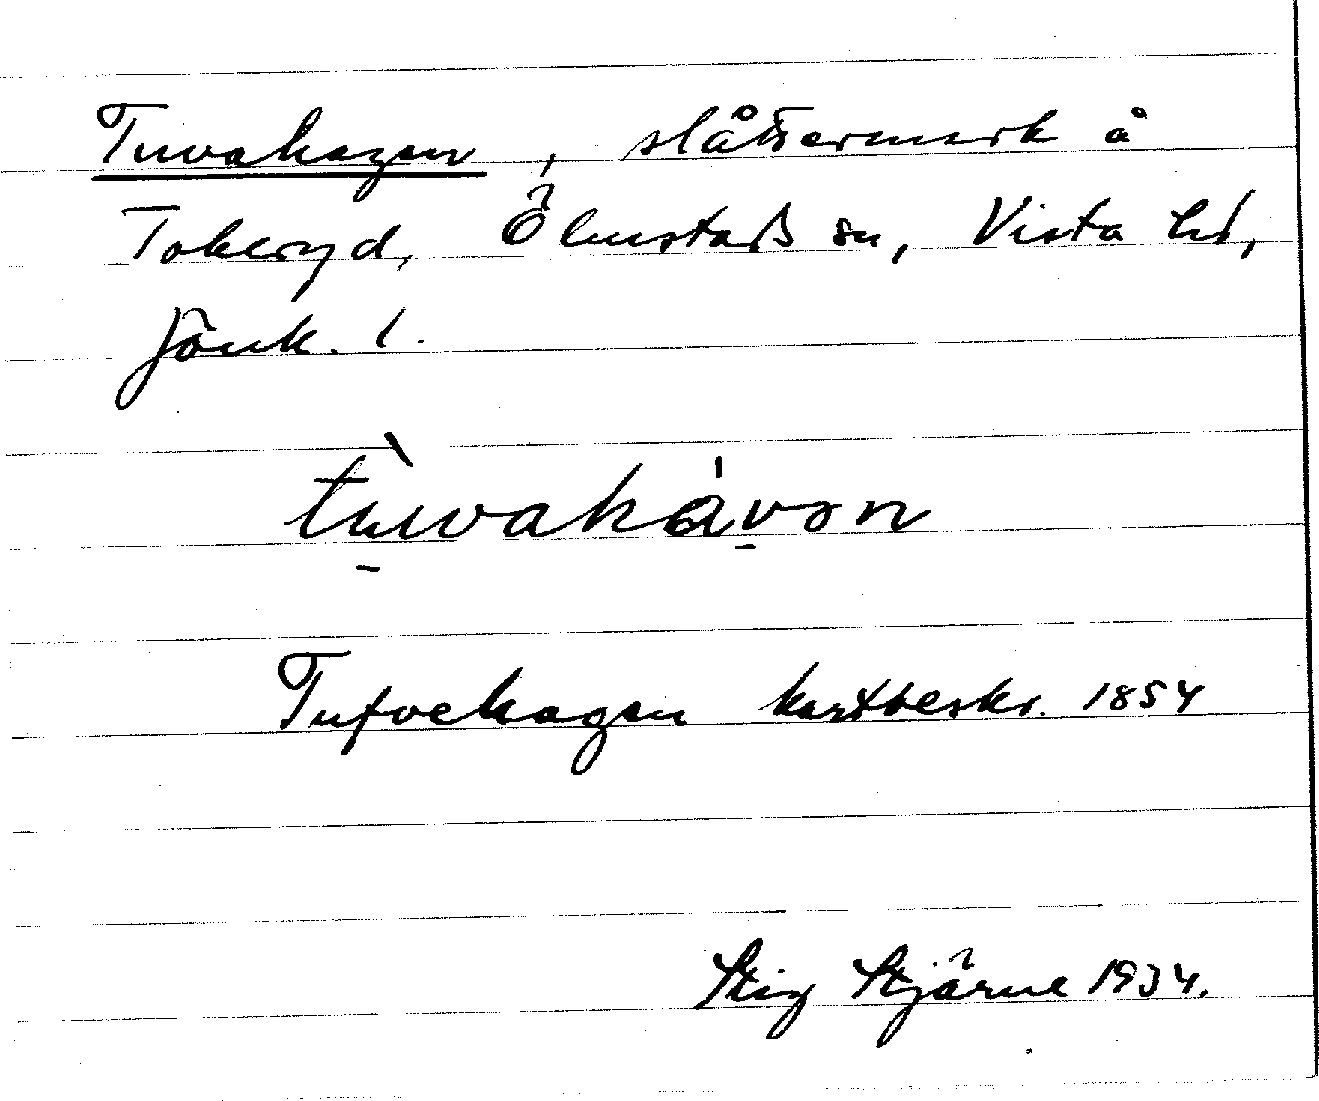 Tuvahagen, slåttermark å
Tokeryd, Ölmstads sn, Vista hd,
Jönk. l.
tùvahàvən
Tufvehagen kartbeskr. 1854
Stig Stjärne 1934.